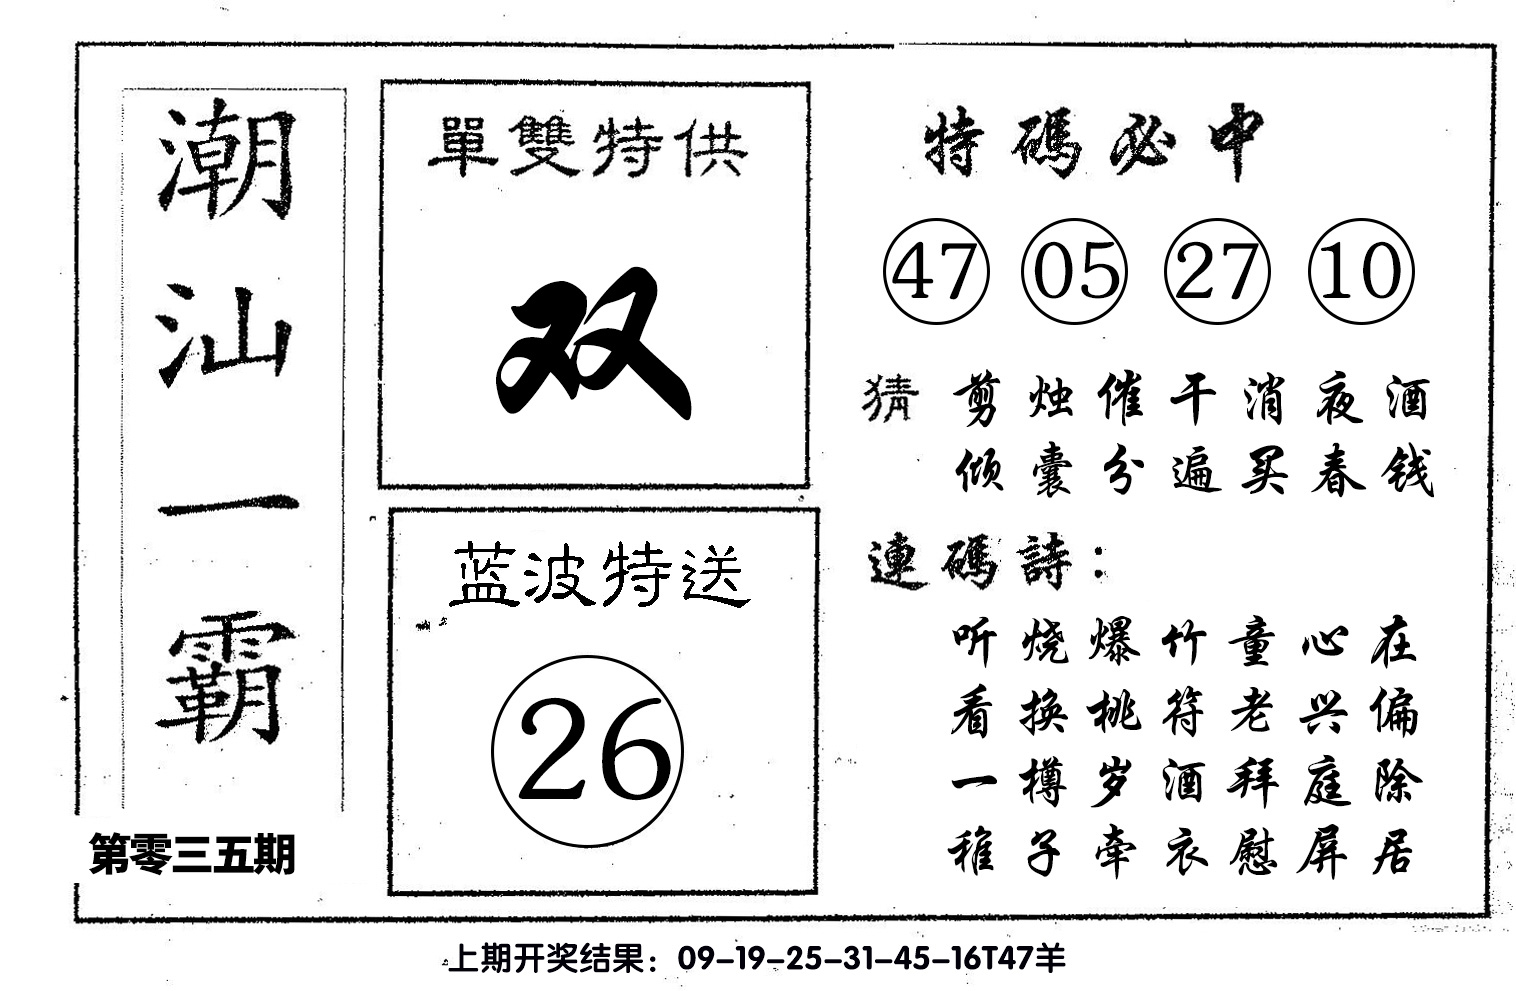 潮汕一霸
第零三五期
單雙特供
双
蓝波特送
26
特碼必中
47 05 27 10
猜 剪烛催干消夜酒
倾囊分遍买春钱
連碼詩：
听烧爆竹童心在
看换桃符老兴偏
一樽岁酒拜庭除
稚子牵衣慰屏居
上期开奖结果：09-19-25-31-45-16T47羊